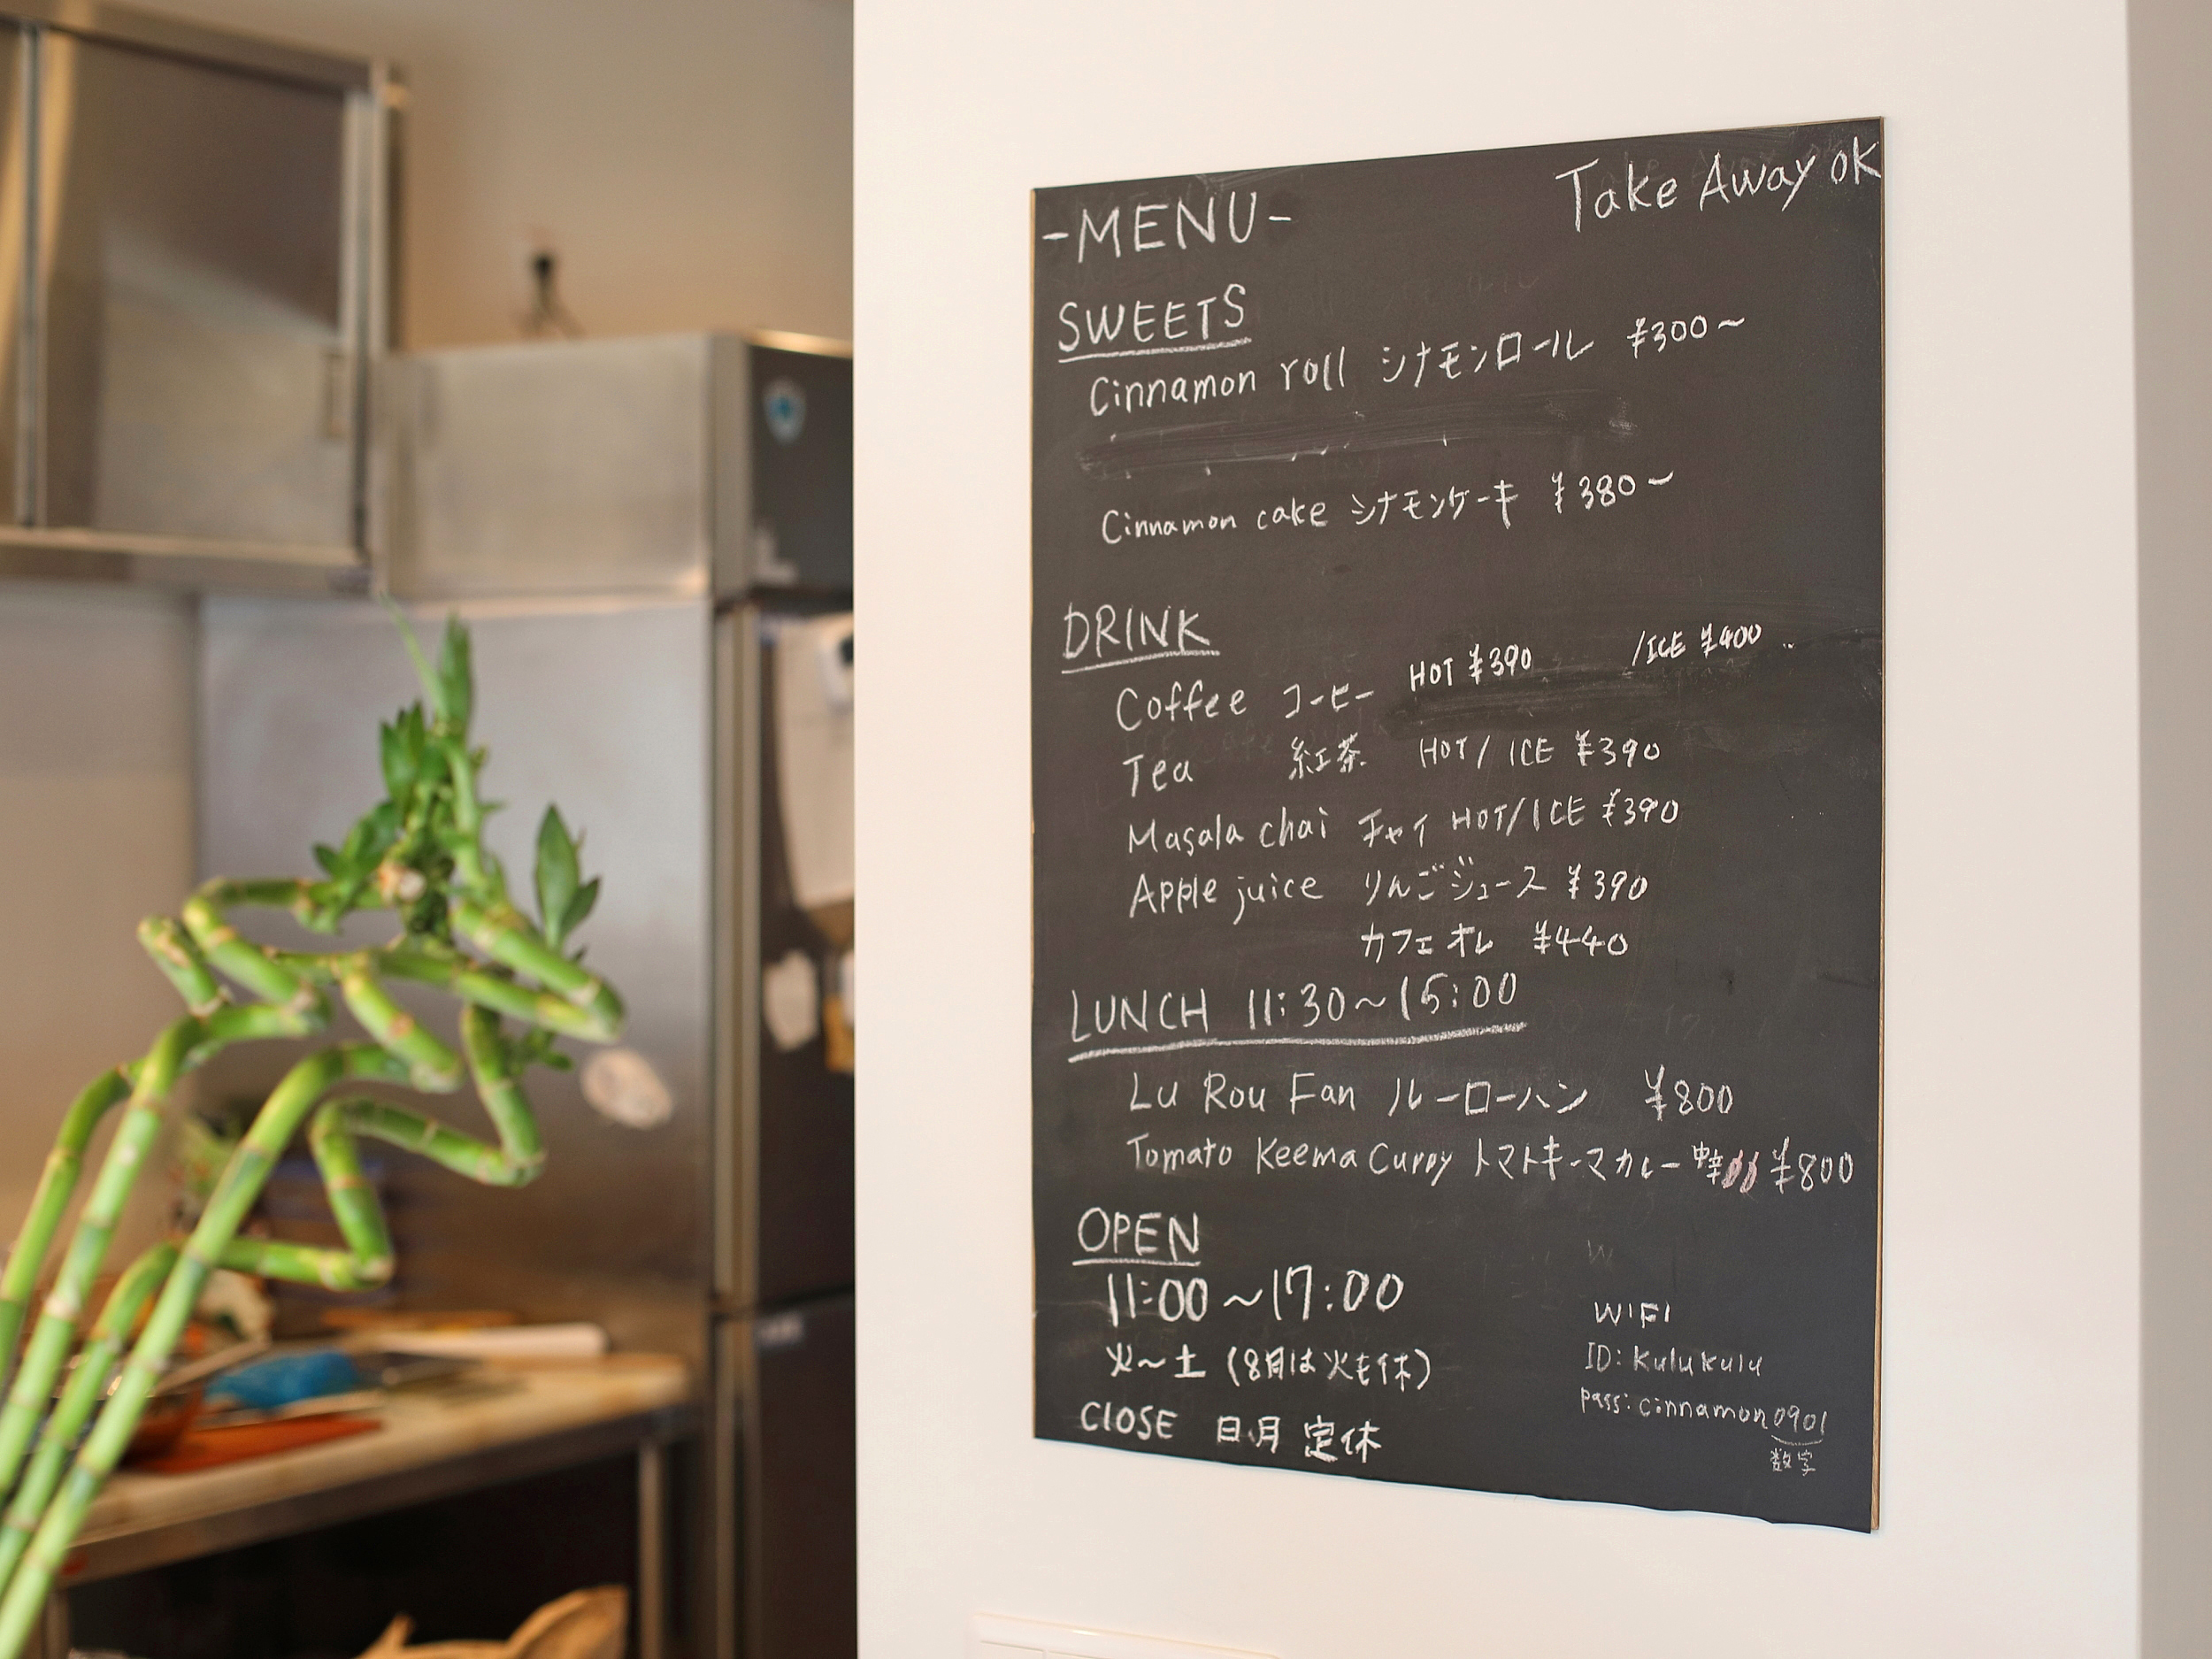 -MENU-
Take Away OK
SWEETS
Cinnamon roll シナモンロール ¥300〜
Cinnamon cake シナモンケーキ ¥380〜
DRINK
Coffee コーヒー HOT ¥390 /ICE ¥400
Tea 紅茶 HOT/ICE ¥390
Masala chai チャイ HOT/ICE ¥390
Apple juice りんごジュース ¥390
カフェオレ ¥440
LUNCH 11:30〜15:00
Lu Rou Fan ルーローハン ¥800
Tomato Keema Curry トマトキーマカレー 中辛 ¥800
OPEN
11:00〜17:00
火〜土 (8月は火も休)
CLOSE 日.月 定休
WIFI
ID: kulukulu
pass: cinnamon0901
数字